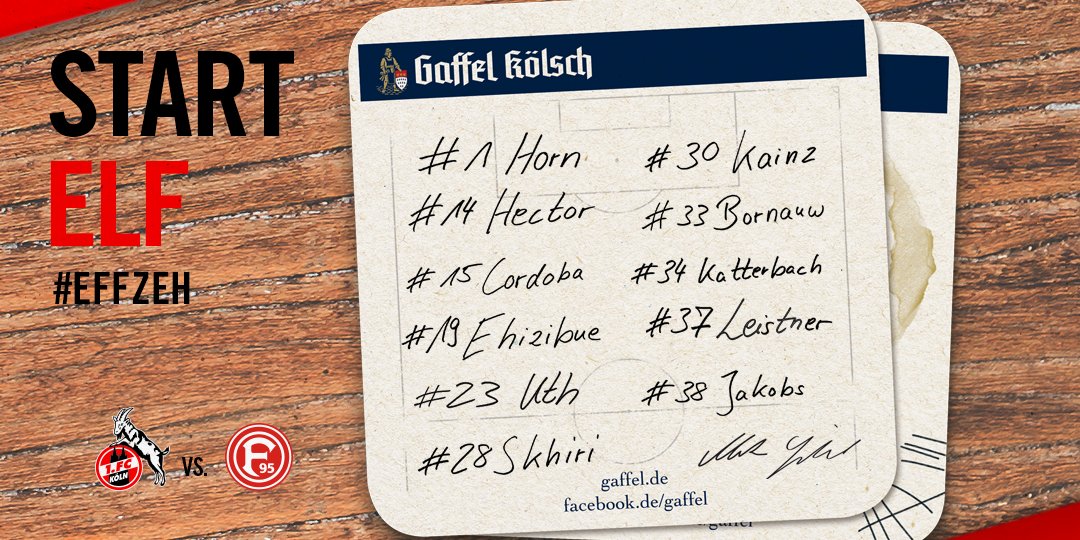 START
ELF
#EFFZEH
1. FC
KÖLN
VS.
F
95
Gaffel Kölsch
#1 Horn
#14 Hector
#15 Cordoba
#19 Ehizibue
#23 Uth
#28 Skhiri
#30 Kainz
#33 Bornauw
#34 Katterbach
#37 Leistner
#38 Jakobs
gaffel.de
facebook.de/gaffel